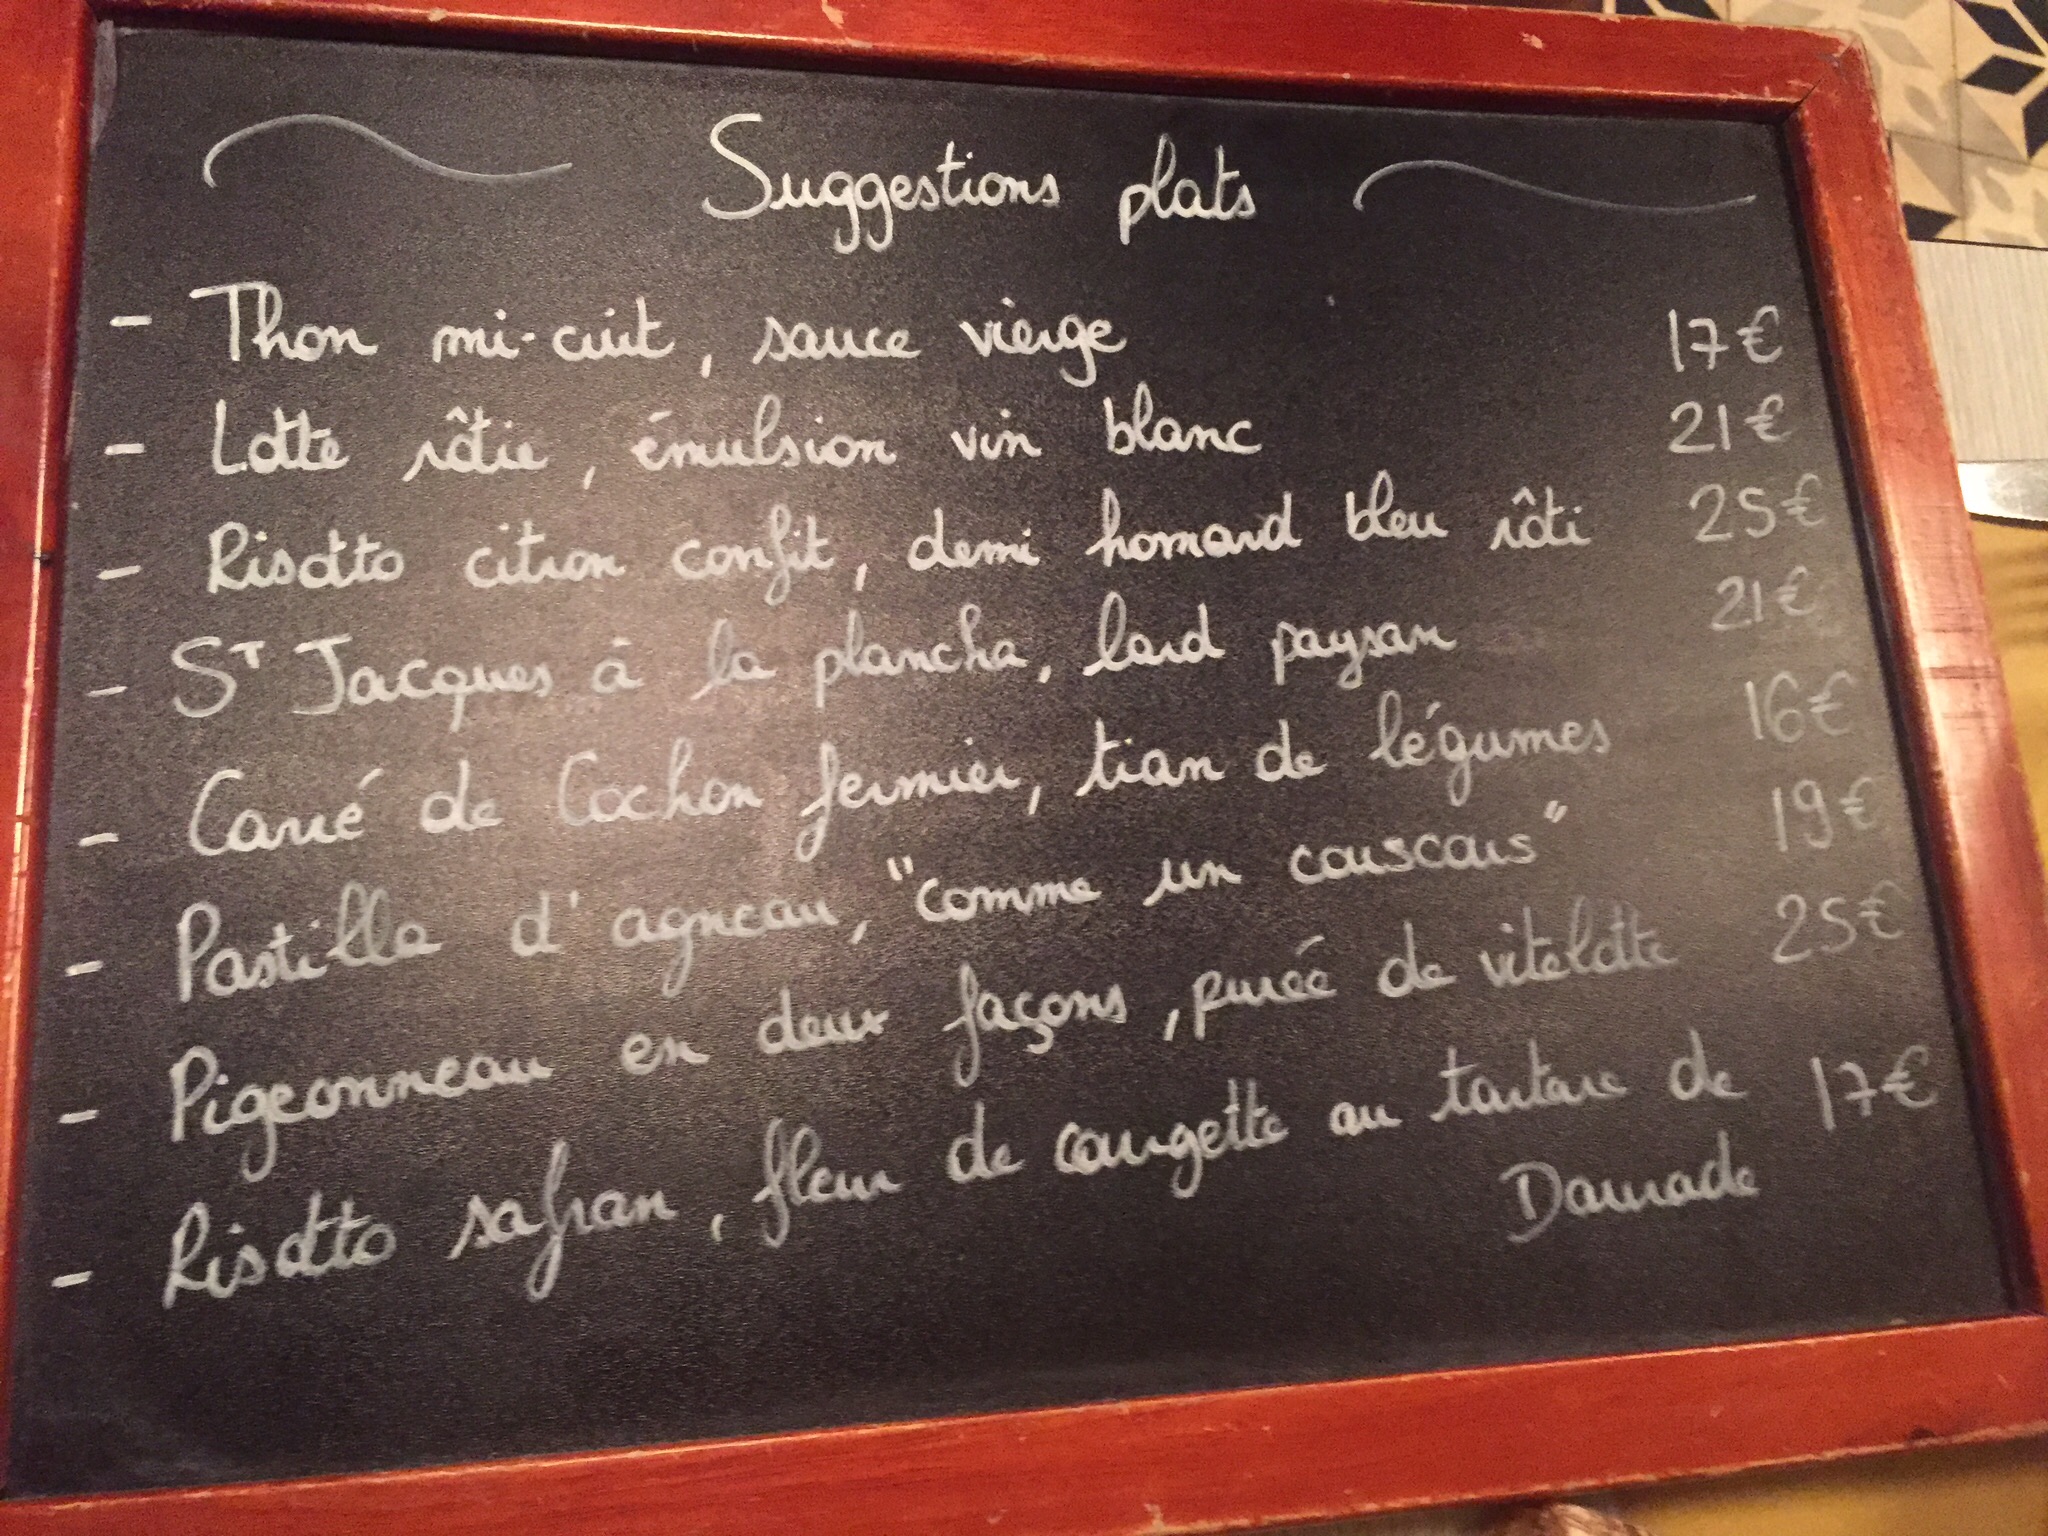 Suggestions plats
- Thon mi-cuit, sauce vierge 17€
- Lotte rôtie, émulsion vin blanc 21€
- Risotto citron confit, demi homard bleu rôti 25€
- ST Jacques à la plancha, lard paysan 21€
- Carré de Cochon fermier, tian de légumes 16€
- Pastilla d'agneau, "comme un couscous" 19€
- Pigeonneau en deux façons, purée de vitelotte 25€
- Risotto safran, fleur de courgette au tartare de 17€
Daurade